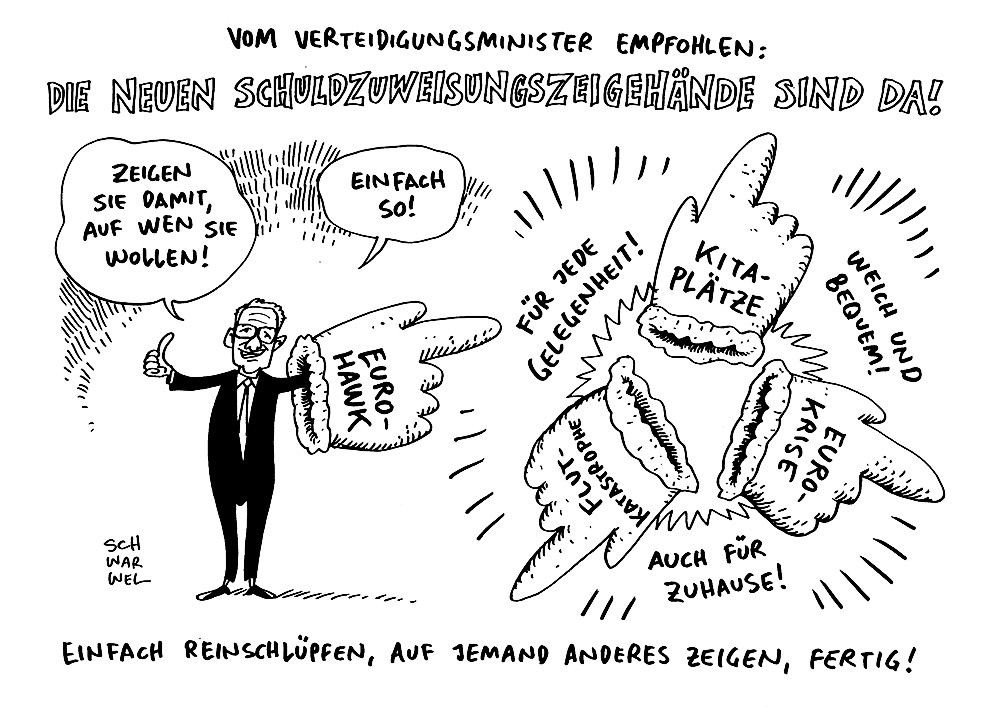 VOM VERTEIDIGUNGSMINISTER EMPFOHLEN:
DIE NEUEN SCHULDZUWEISUNGSZEIGEHÄNDE SIND DA!
ZEIGEN
SIE DAMIT,
AUF WEN SIE
WOLLEN!
EINFACH
SO!
EURO-
HAWK
FÜR JEDE
GELEGENHEIT!
KITA-
PLÄTZE
WEICH UND
BEQUEM!
FLUT-
KATASTROPHE
EURO-
KRISE
AUCH FÜR
ZUHAUSE!
SCH
WAR
WEL
EINFACH REINSCHLÜPFEN, AUF JEMAND ANDERES ZEIGEN, FERTIG!